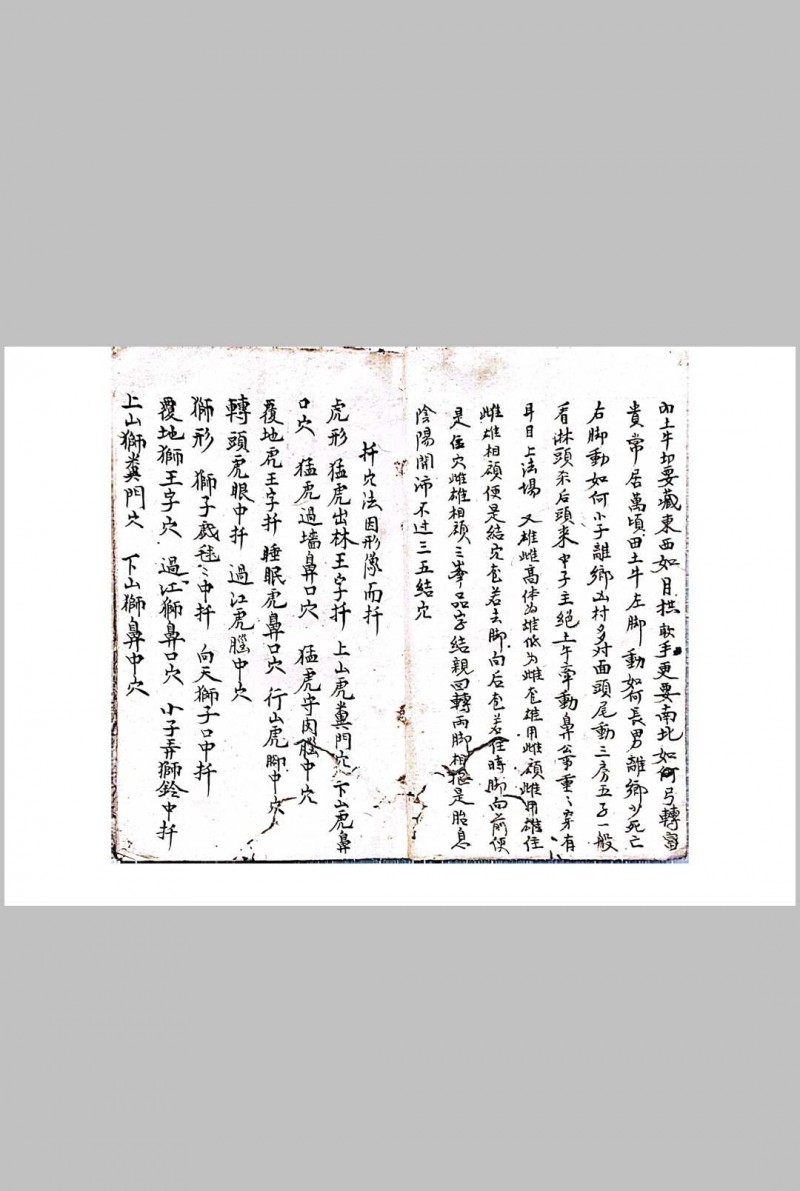 土牛切要藏東西如月拱歌手更要南北如何弓轉
貴常居萬頃田土牛左脚動如何長男離鄉少死亡
右脚動如何小子離鄉凶村多対面頭尾動三房五子一般
看淋頭索后頭來中子主絕土牛牽動鼻公事重〻穿有
耳目上法場 又雄雌高体為雄低为雌雄用雌顧雌用雄住
雌雄相顧便是結穴若去脚向后若住時脚向前便
是值穴雌雄相顧三峯品字結親回轉两脚相摳是胎息
陰陽開沛不过三五結穴
扦穴法因形像而扦
虎形 猛虎出林王字扦 上山虎糞門穴 下山虎鼻
口穴 猛虎過墙鼻口穴 猛虎守肉腦中穴
覆地虎王字扦 睡眠虎鼻口穴 行山虎脚中穴
轉頭虎眼中扦 過江虎腦中穴
獅形 獅子戲毬〻中扦 向天獅子口中扦
覆地獅王字穴 過江獅鼻口穴 小子弄獅鈴中扦
上山獅糞門穴 下山獅鼻中穴